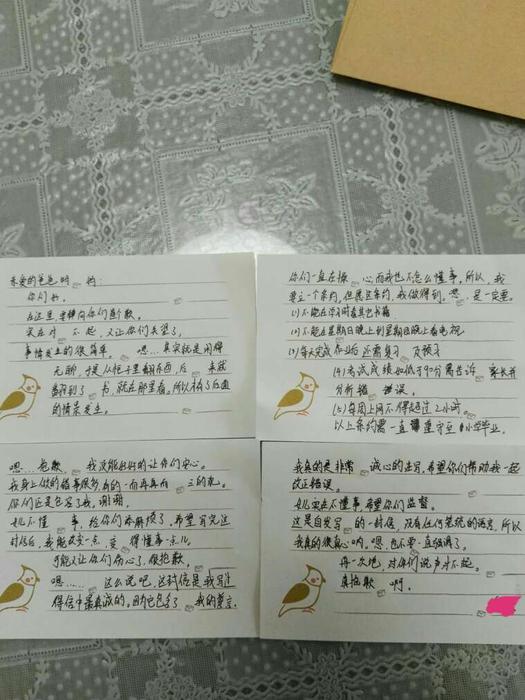 亲爱的爸爸妈妈:
你们好。
在这里,幸静向你们道歉。
实在对不起,又让你们失望了。
事情发生的很简单。嗯…其实就是闲得
无聊,于是从柜子里翻东西,后来就
翻到了书,就在那里看。所以有了后面
的情景发生。
你们一直在操心,而我也不怎么懂事。所以,我
要立一个条约,但愿这条约,我做得到。嗯,是一定要。
(1)不能在学习时看其它书籍
(2)不能在星期日晚上到星期四晚上看电视
(3)每天完成作业后还需复习及预习
(4)考试成绩如低于90分需告诉家长并
分析错误。
(5)每周上网不得超过2小时。
以上条约需一直遵守至小学毕业。
嗯…抱歉,我没能好好的让你们安心。
我身上做的错事很多,有的一而再再而三的犯。
你们还是包容了我,谢谢。
女儿不懂事,给你们添麻烦了。希望写完这
封信后,我能改变一点,变得懂事一点儿。
可能又让你们伤心了,很抱歉。
嗯……这么说吧,这封信是我写过
得信中最真诚的。因为它包含了我的誓言。
我真的是非常诚心的在写,希望你们帮助我一起
改正错误。
女儿实在不懂事,希望你们监督。
这是自发写的一封信,没有任何笼统的语言,所以
我真的很真心呐。嗯,也不要一直强调了。
再一次地对你们说声对不起。
真抱歉啊。